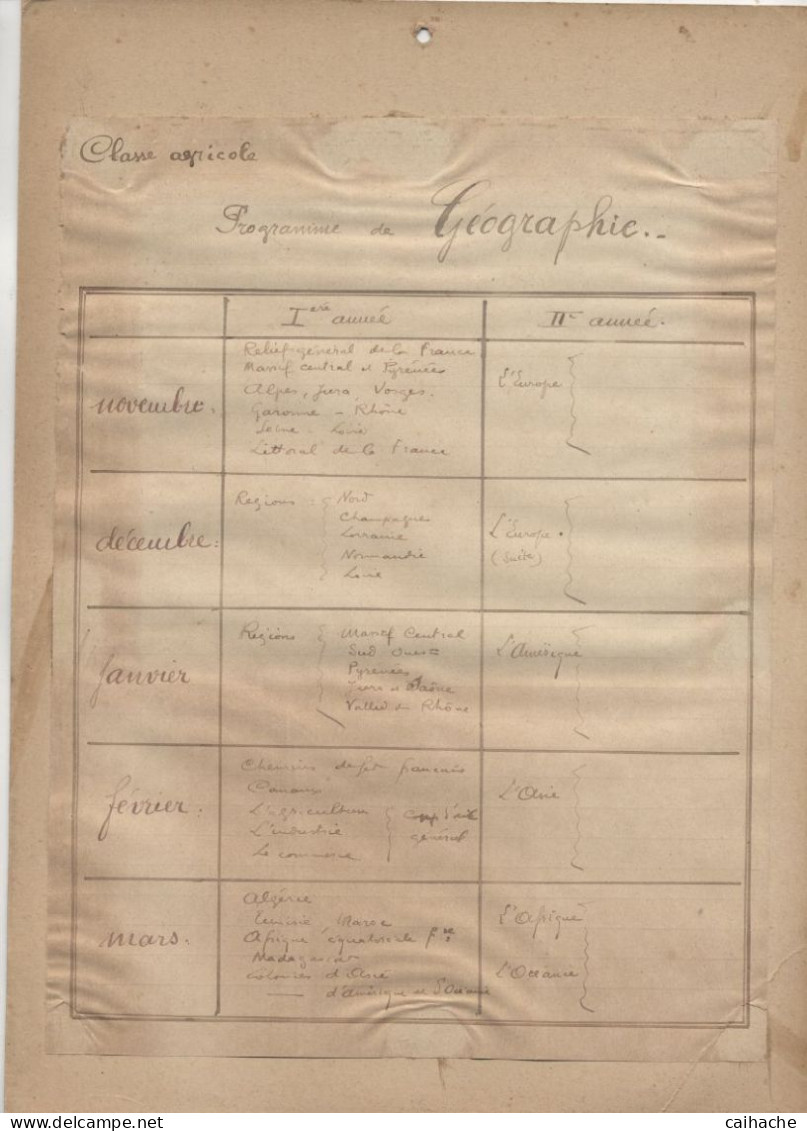 Classe agricole
Programme de Géographie.-
Iere année
IIe année.
novembre.
Relief général de la France
Massif central et Pyrénées
Alpes, Jura, Vosges.
Garonne - Rhône
Seine - Loire
Littoral de la France
L'Europe
décembre:
Régions : Nord
Champagne
Lorraine
Normandie
Loire
L'Europe.
(suite)
Janvier
Régions Massif Central
Sud Ouest
Pyrénées
Jura et Saône
Vallée du Rhône
L'Amérique
février.
Chemins de fer français
Canaux
L'agriculture
L'industrie
Le commerce
coup d'œil
général
L'Asie
mars.
Algérie
Tunisie Maroc
Afrique équatoriale fse
Madagascar
Colonies d'Asie
—— d'Amérique et d'Océanie
L'Afrique
L'Océanie
caihache